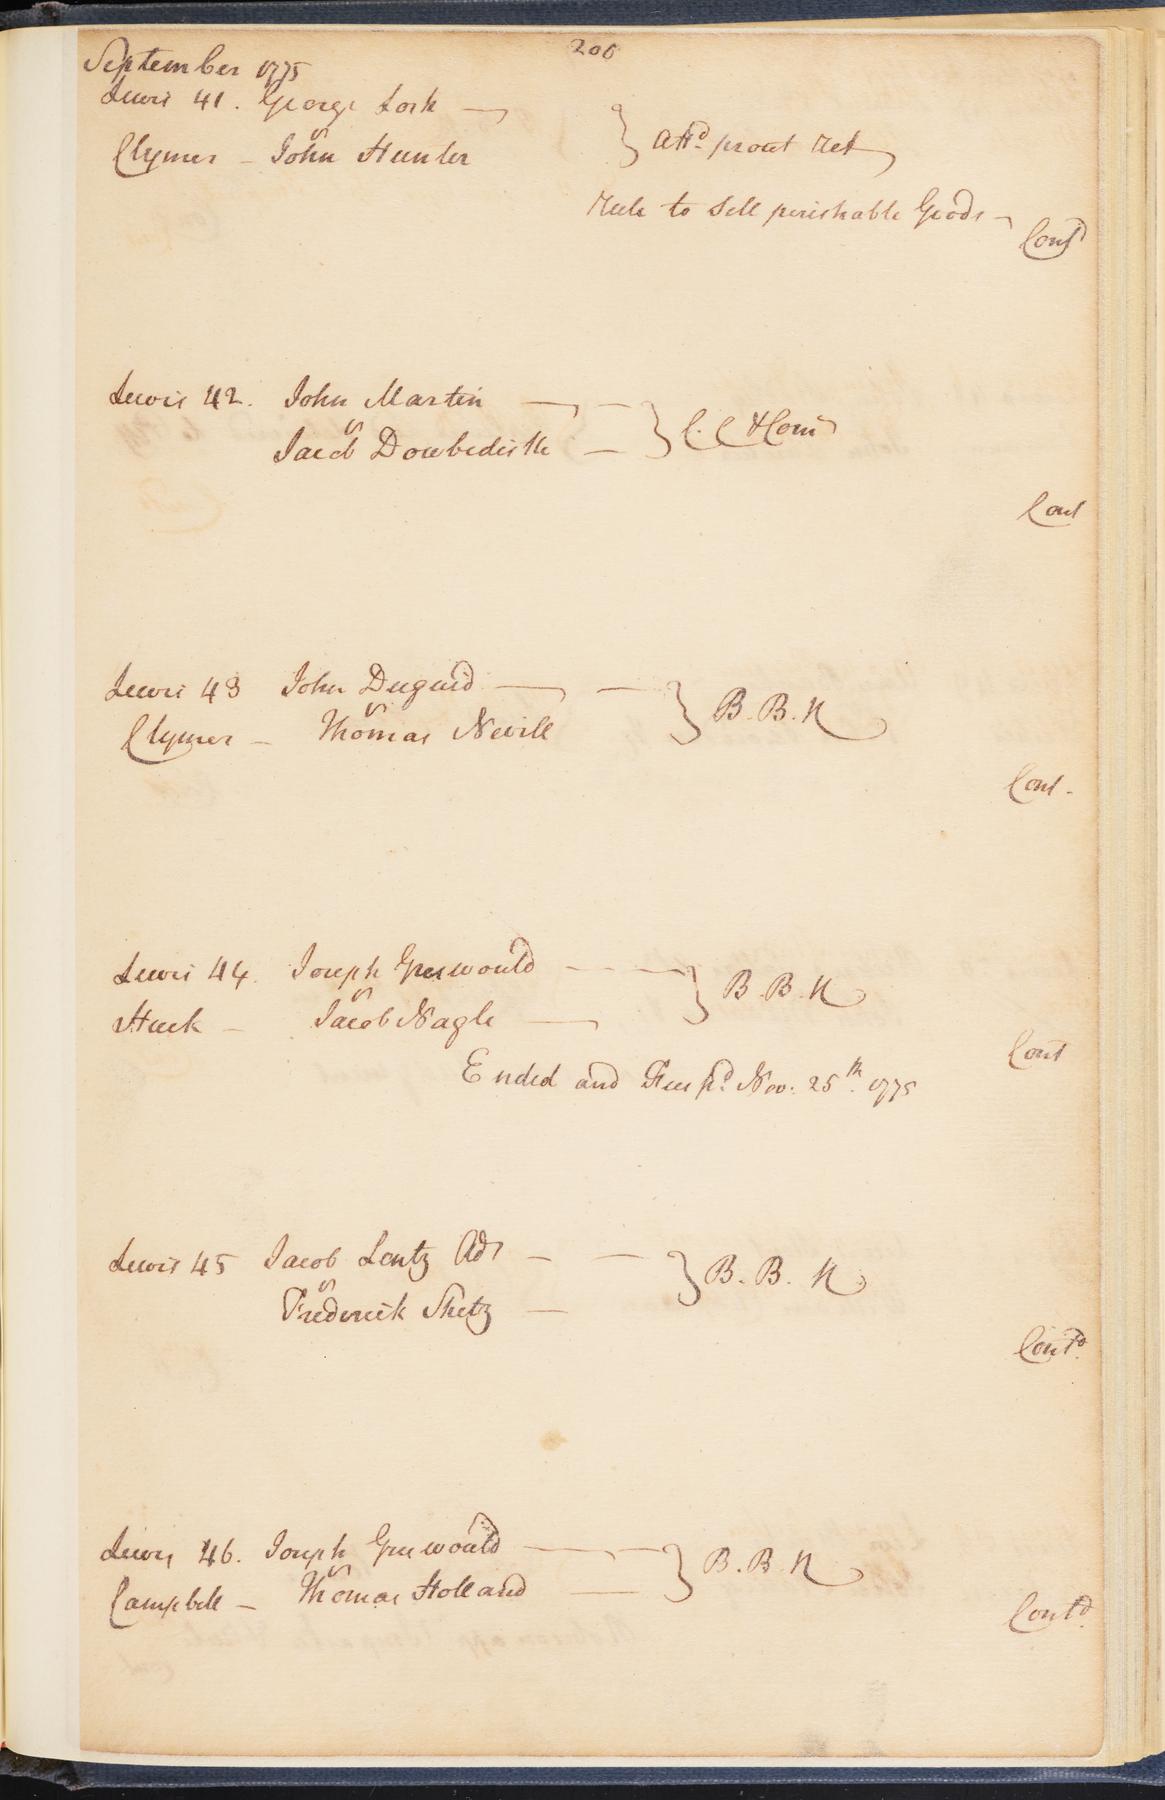 206
September 1775
Lewis 41. George Lork
vs
Clymer - John Hunter } Attd. prout Ret
Rule to Sell perishable Goods
Contd
Lewis 42. John Martin
vs
Jacob Dowbedistle } C. C & Comd
Cont
Lewis 43 John Duguid
vs
Clymer - Thomas Nevill } B. B. N
Cont.
Lewis 44. Joseph Greswould
vs
Huck - Jacob Nagle } B. B. N
Cont
Ended and Fees pd. Nov. 25th. 1775
Lewis 45 Jacob Lentz Adr
vs
Frederick Shetz } B. B. N
Contd.
Lewis 46. Joseph Greswould
vs
Campbell - Thomas Holland } B. B. N
Contd.